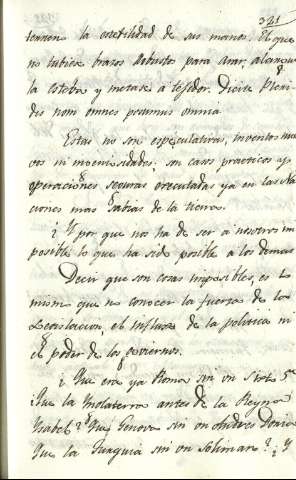 321
terreno la esterilidad de sus manos. El que
no tubiere brazos robustos para arar, alargue
la esteba y metase á tejedor. Dicite Pieri-
dis nom omnes posumus omnia.
Estas no son especulativas, inventos nue-
vos ni inmensidades. son casos practicos y
operaciones seguras executadas ya en las Na-
ciones mas sabias de la tierra.
¿Y por que nos ha de ser á nosotros im-
posible lo que ha sido posible a los demas
Decir que son cosas imposibles, es lo
mismo que no conocer la fuerza de la
Legislacion, el influxo de la politica ni
el poder de los goviernos.
¿Que era ya Roma sin un Sixto 5º
¿Que la Inglaterra antes de la Reyna
Ysabel? ¿Que Genova sin un Andres Doria
Que la Turquia sin un Soliman? ¿Y